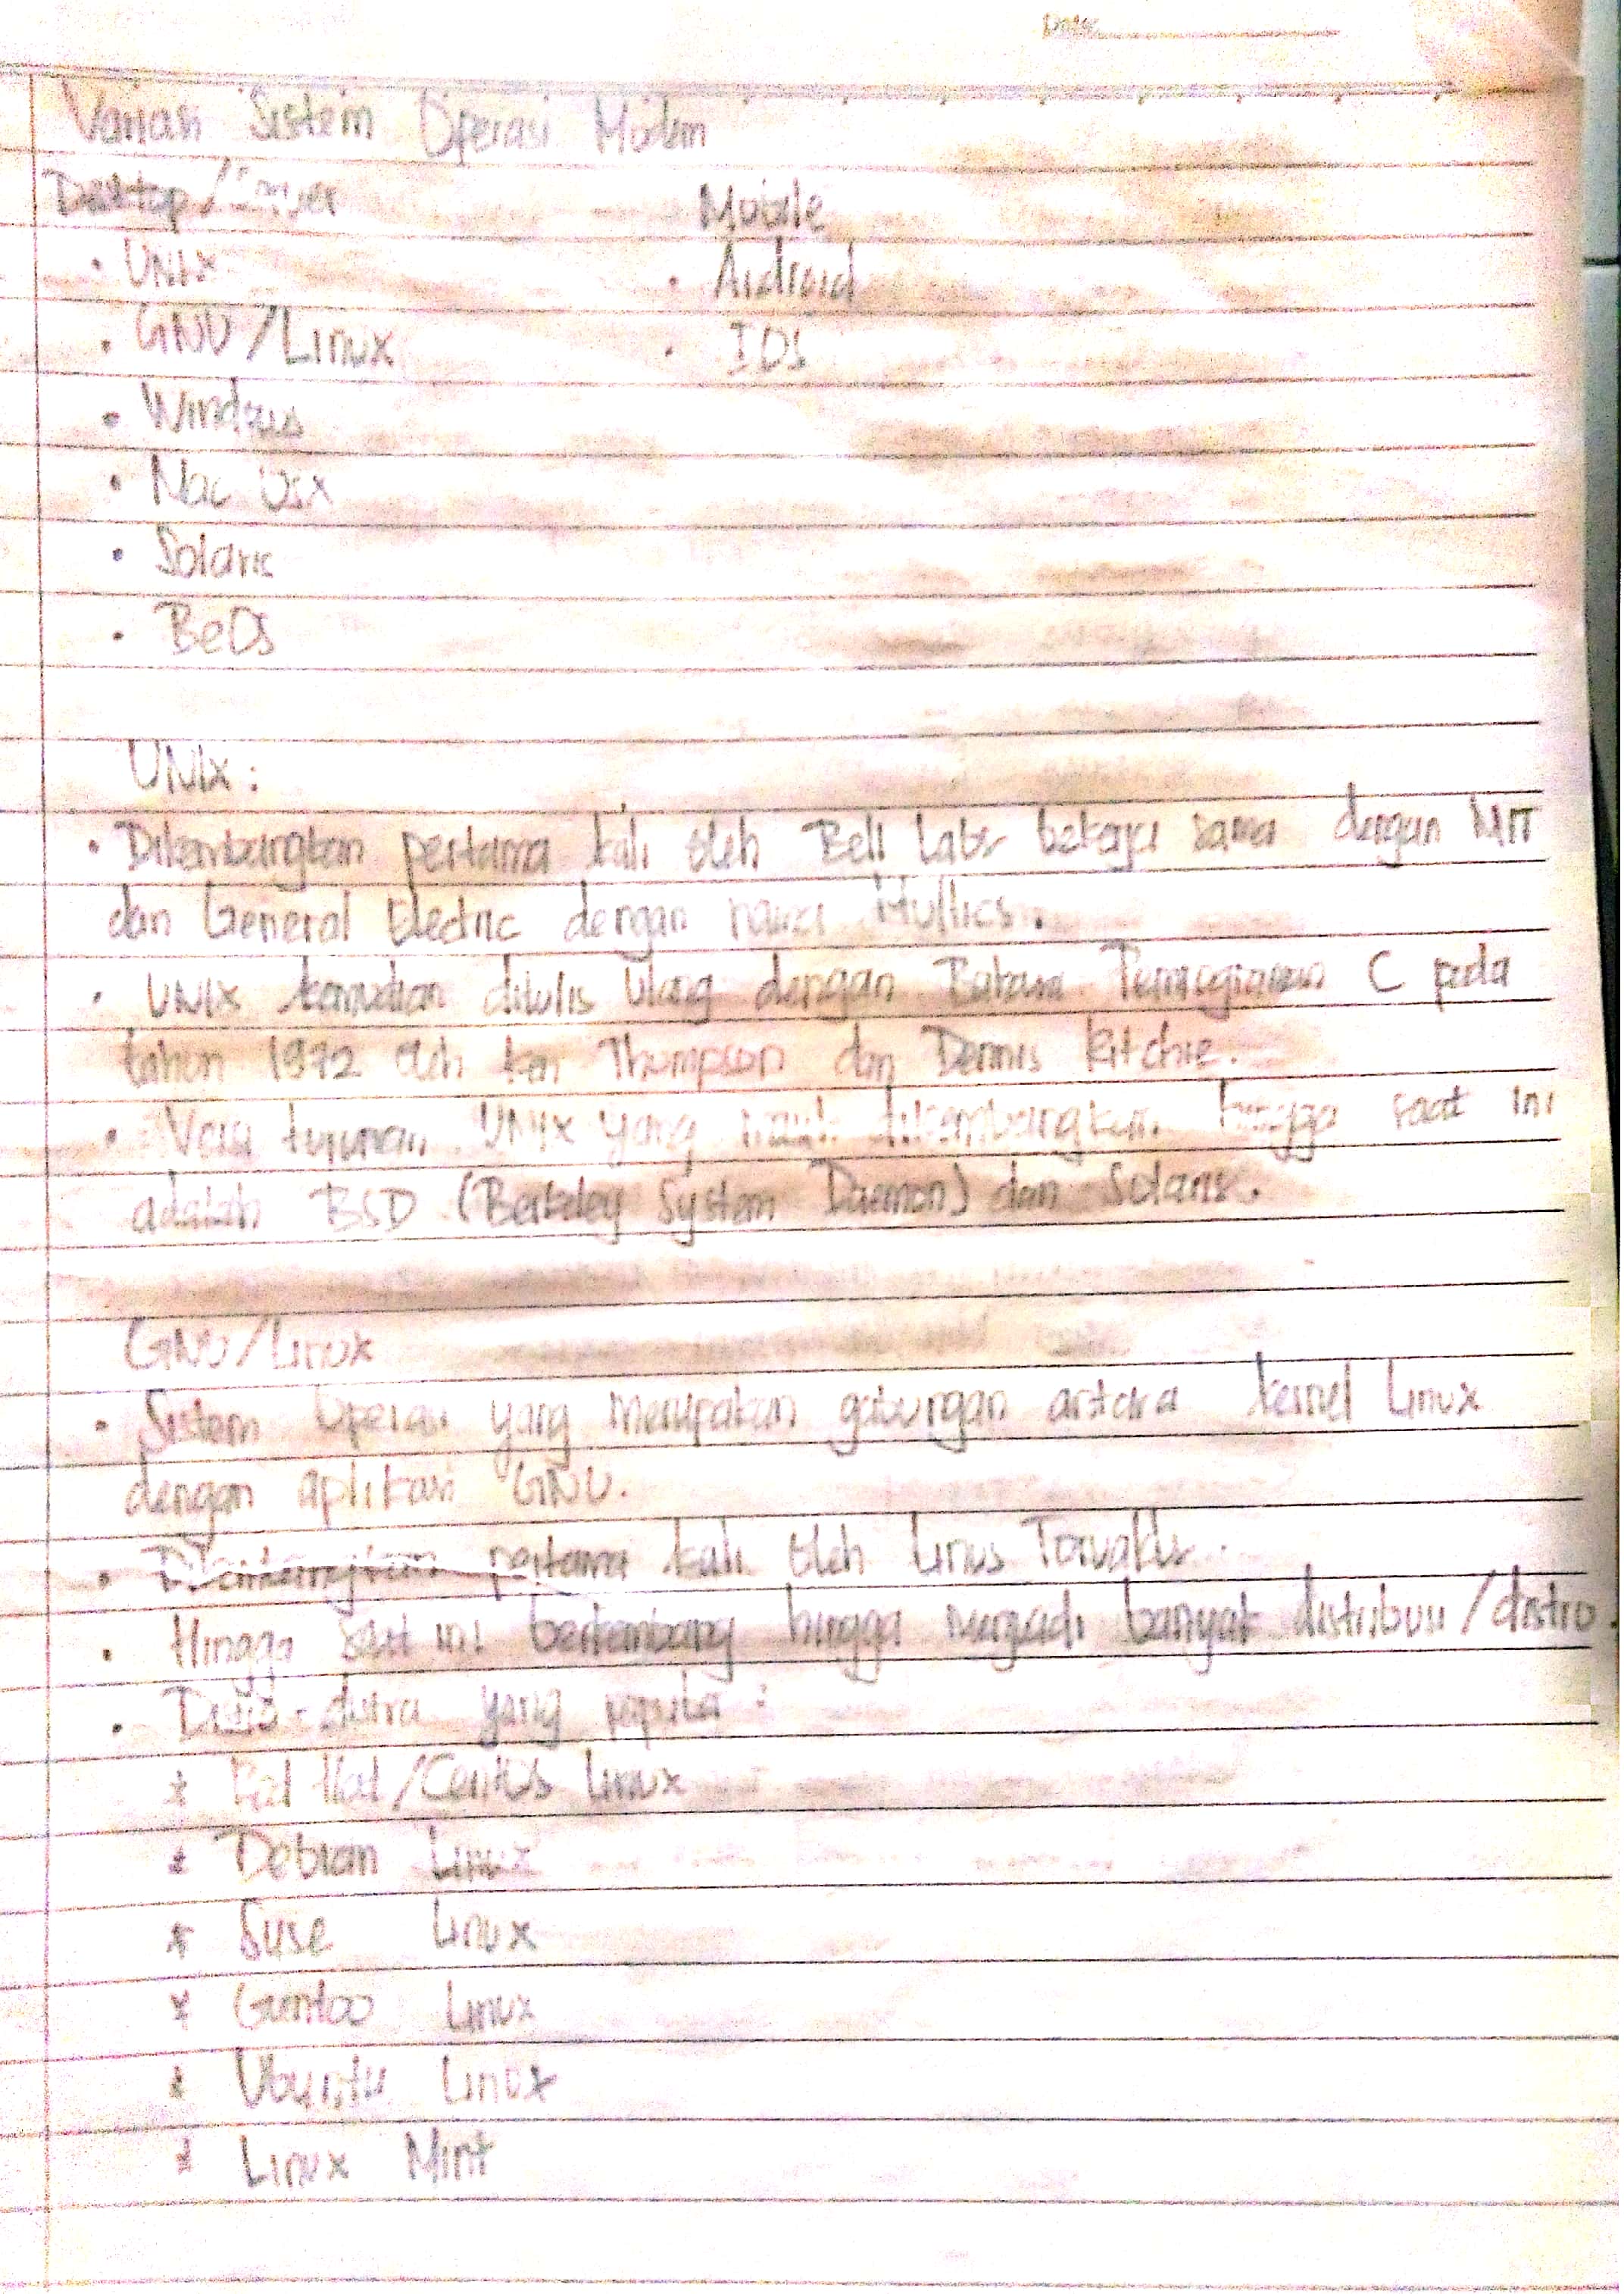 Date
Varian Sistem Operasi Modern
Desktop/Server Mobile
• UNIX • Android
• GNU/Linux • IOS
• Windows
• Mac Osx
• Solaris
• BeOS
UNIX :
• Dikembangkan pertama kali oleh Bell Labs bekerja sama dengan MIT
dan General Electric dengan nama Multics.
• UNIX kemudian ditulis ulang dengan Bahasa Pemrograman C pada
tahun 1972 oleh Ken Thompson dan Dennis Ritchie.
• Versi turunan UNIX yang masih dikembangkan hingga saat ini
adalah BSD (Berkeley System Daemon) dan Solaris.
GNU/Linux
• Sistem Operasi yang merupakan gabungan antara kernel Linux
dengan aplikasi GNU.
• Dikembangkan pertama kali oleh Linus Torvalds.
• Hingga saat ini berkembang hingga menjadi banyak distribusi/distro.
• Distro-distro yang populer :
* Red Hat/CentOS Linux
* Debian Linux
* Suse Linux
* Gentoo Linux
* Ubuntu Linux
* Linux Mint